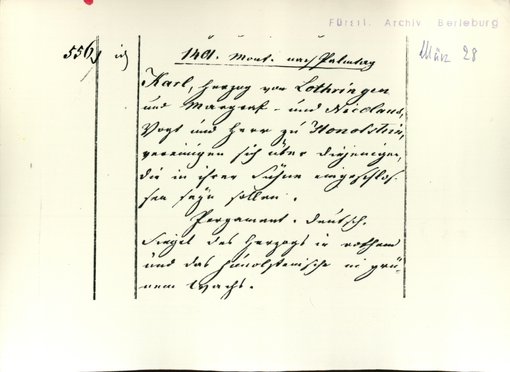 Fürstl. Archiv Berleburg
März 28
556
1401. Mont. nach Palmtag
Karl, Herzog von Lothringen
und Margraf - und Nicolaus,
Vogt und Herr zu Honolstein,
vereinigen sich über diejenigen,
die in ihrer Sühne eingeschlos-
sen seyn sollen.
Pergament. deutsch.
Siegel des Herzogs in rothem
und das honolsteinische in grü-
nem Wachs.